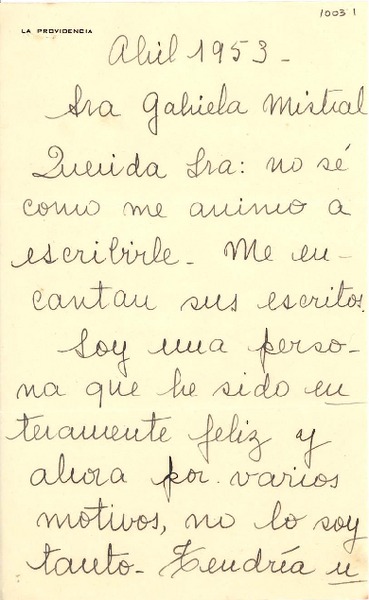 1003 1
LA PROVIDENCIA
Abril 1953 -
Sra Gabriela Mistral
Querida Sra: no sé
como me animo a
escribirle - Me en-
cantan sus escritos.
Soy una perso-
na que he sido en
teramente feliz y
ahora por varios
motivos, no lo soy
tanto - Tendría u